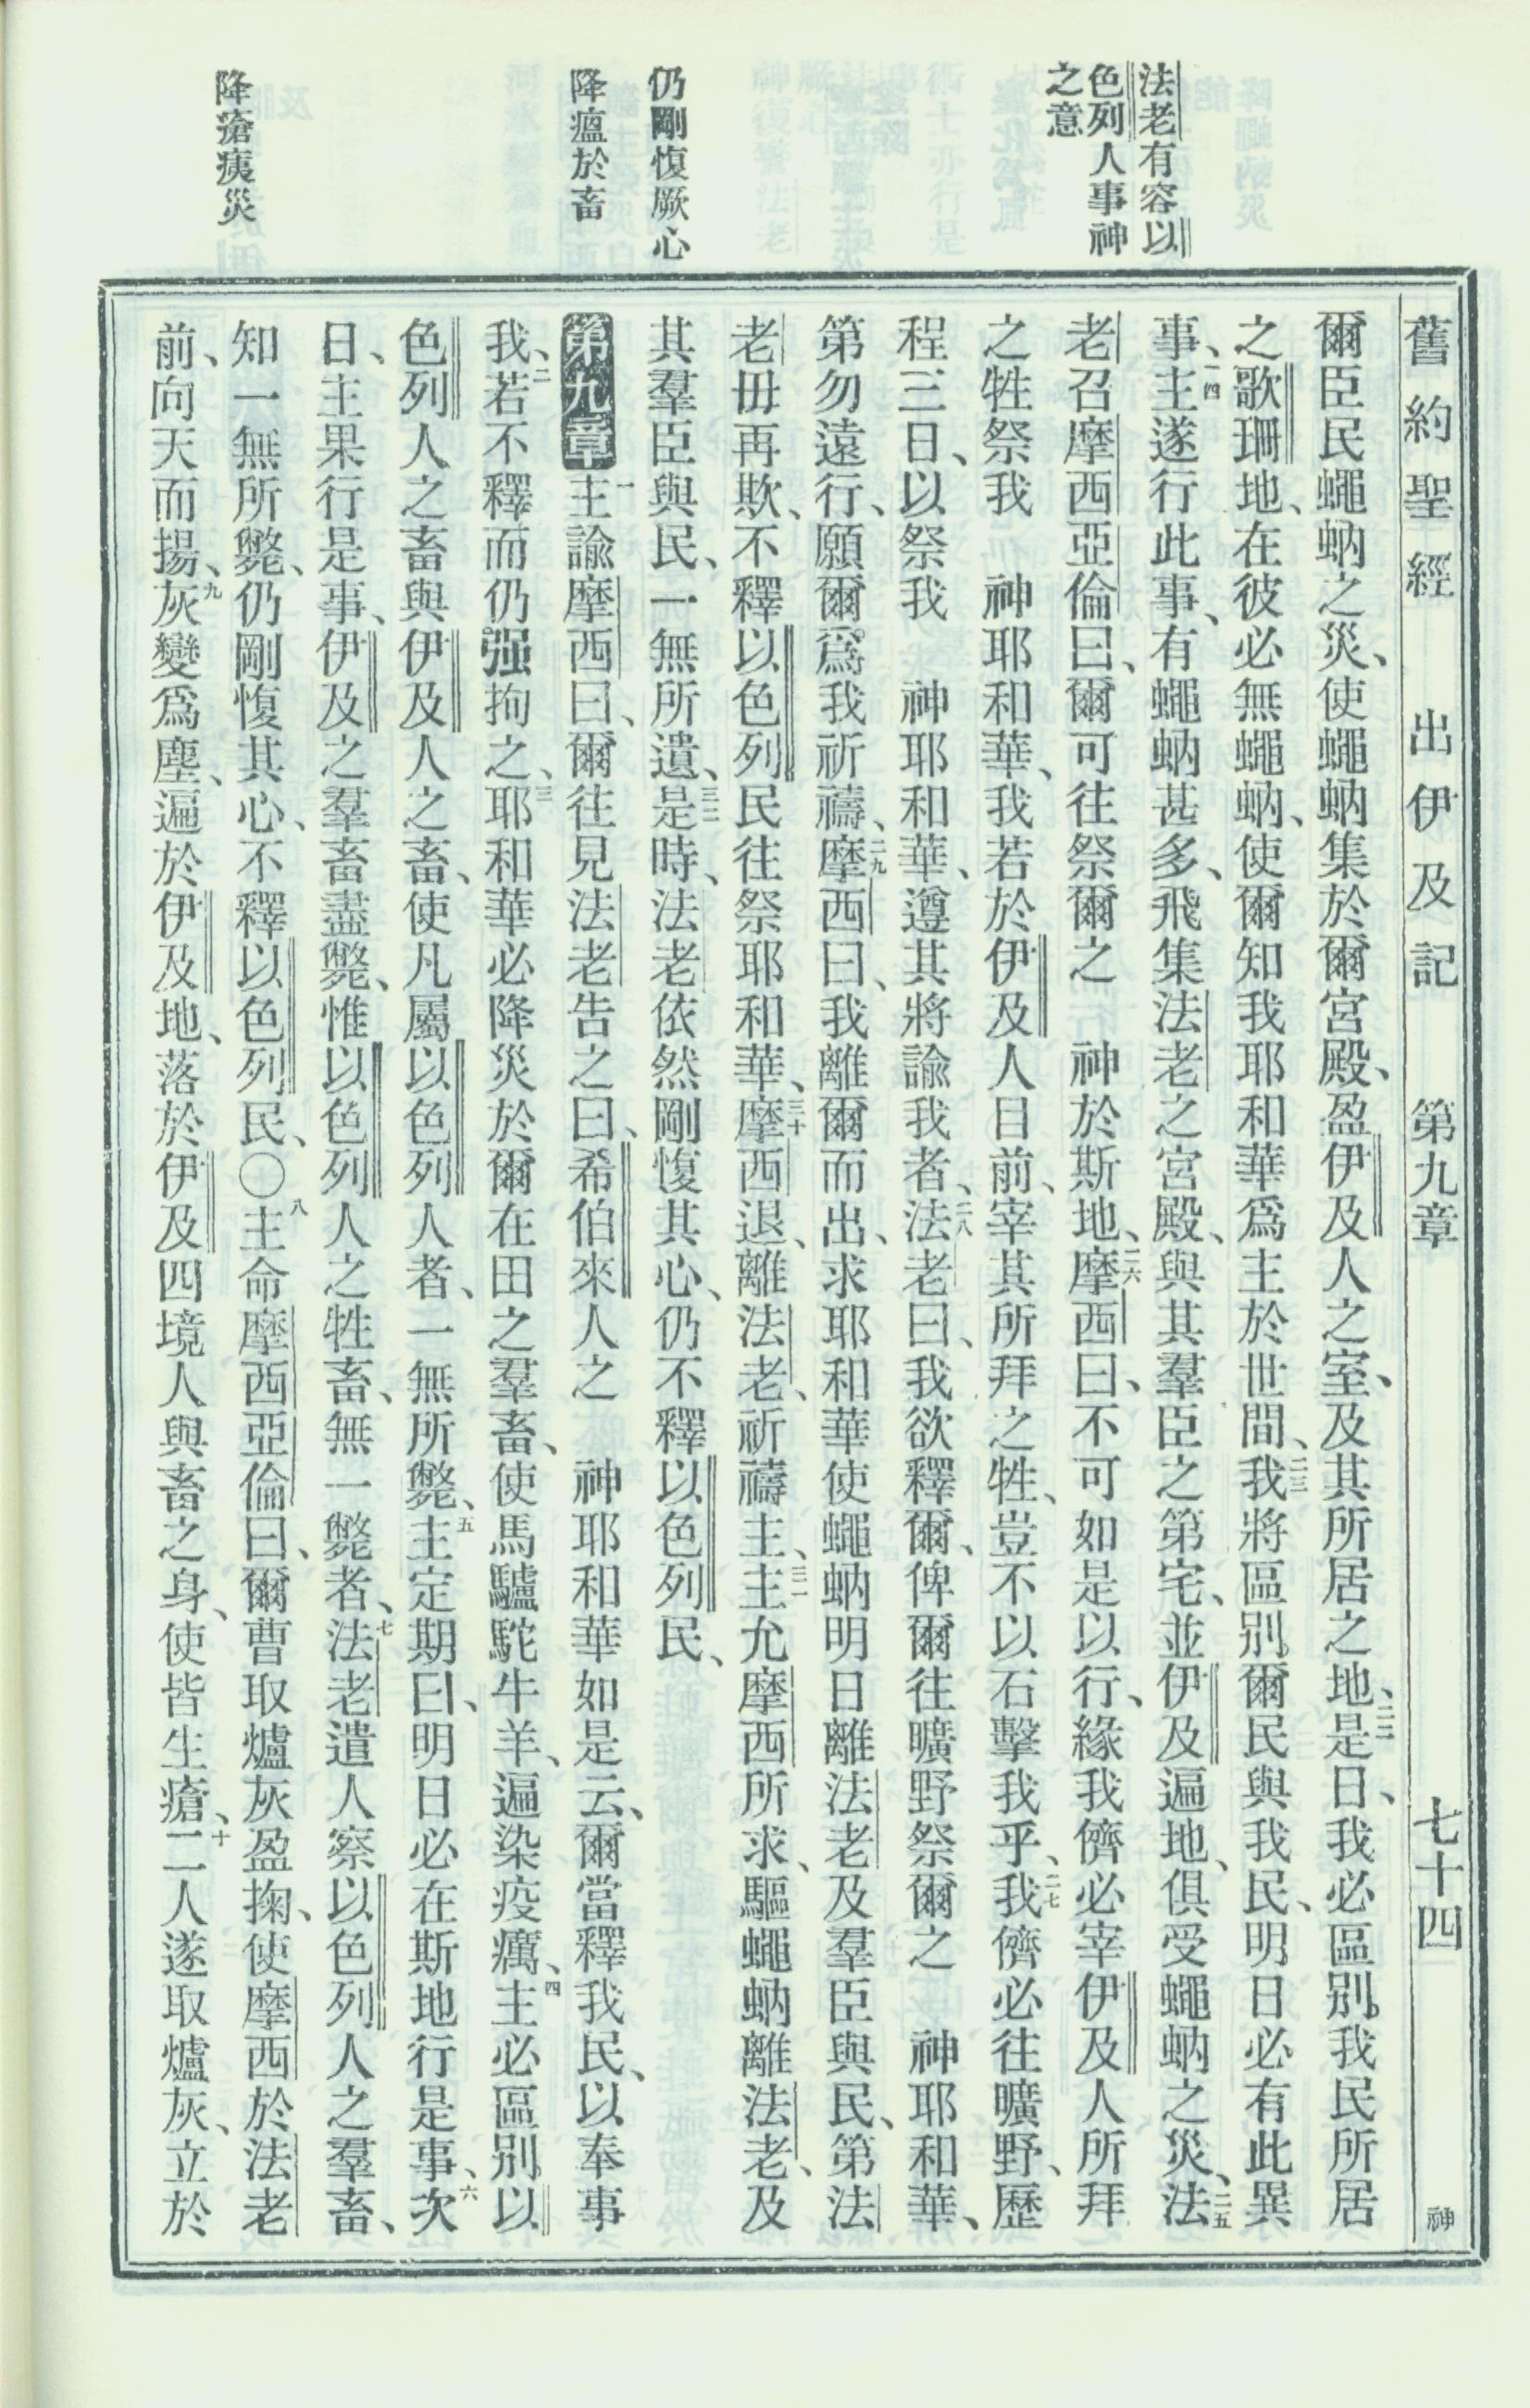 舊約聖經 出伊及記 第九章 七十四 神
法老有容以
色列人事神
之意
仍剛愎厥心
降瘟於畜
降瘡痍災
爾臣民蠅蚋之災、使蠅蚋集於爾宮殿、盈伊及人之室、及其所居之地、二二是日、我必區別我民所居
之歌珊地、在彼必無蠅蚋、使爾知我耶和華爲主於世間、二三我將區別爾民與我民、明日必有此異
事、二四主遂行此事、有蠅蚋甚多、飛集法老之宮殿、與其羣臣之第宅、並伊及遍地、俱受蠅蚋之災、二五法
老召摩西亞倫曰、爾可往祭爾之 神於斯地、二六摩西曰、不可如是以行、緣我儕必宰伊及人所拜
之牲祭我 神耶和華、我若於伊及人目前、宰其所拜之牲、豈不以石擊我乎、二七我儕必往曠野、歷
程三日、以祭我 神耶和華、遵其將諭我者、二八法老曰、我欲釋爾、俾爾往曠野祭爾之 神耶和華、
第勿遠行、願爾爲我祈禱、二九摩西曰、我離爾而出、求耶和華使蠅蚋明日離法老及羣臣與民、第法
老毋再欺、不釋以色列民往祭耶和華、三十摩西退、離法老、祈禱主、三一主允摩西所求、驅蠅蚋離法老、及
其羣臣與民、一無所遺、三二是時、法老依然剛愎其心、仍不釋以色列民、
第九章 一主諭摩西曰、爾往見法老告之曰、希伯來人之 神耶和華如是云、爾當釋我民、以奉事
我、二若不釋而仍强拘之、三耶和華必降災於爾在田之羣畜、使馬驢駝牛羊、遍染疫癘、四主必區別以
色列人之畜與伊及人之畜、使凡屬以色列人者、一無所斃、五主定期曰、明日必在斯地行是事、六次
日、主果行是事、伊及之羣畜盡斃、惟以色列人之牲畜、無一斃者、七法老遣人察以色列人之羣畜、
知一無所斃、仍剛愎其心、不釋以色列民、〇八主命摩西亞倫曰、爾曹取爐灰盈掬、使摩西於法老
前、向天而揚、九灰變爲塵、遍於伊及地、落於伊及四境人與畜之身、使皆生瘡、十二人遂取爐灰、立於